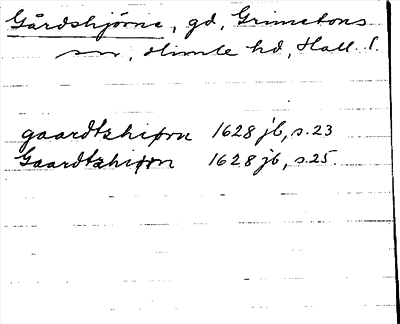 Gårdshjörne, gd, Grimetons
sn, Himle hd, Hall. l.
gaardtzhiørn 1628 jb, s. 23
Gaardtzhiørn 1628 jb, s. 25.